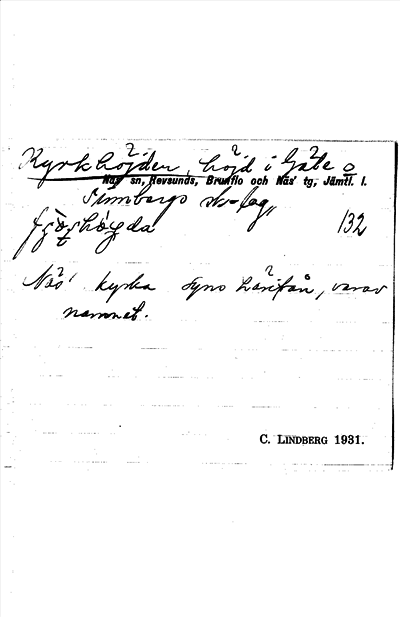 Kyrkhöjden, höjd i Gåle o
Näs sn, Revsunds, Brunflo och Näs' tg, Jämtl. l.
skog
132
Näs' kyrka syns härifrån, varav
namnet.
C. LINDBERG 1931.